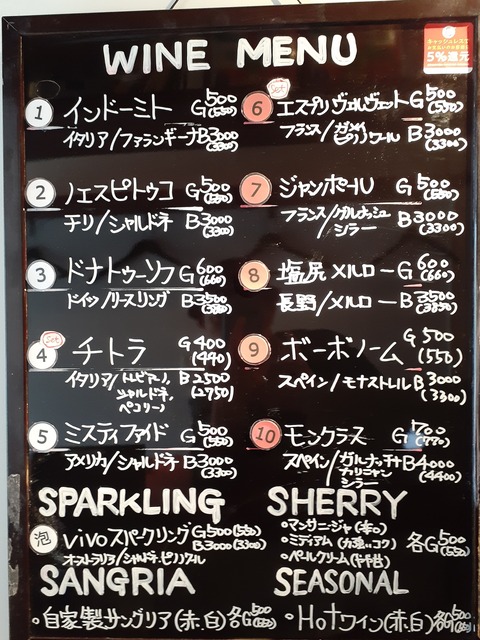 WINE MENU
キャッシュレスで
5%還元
1 インドーミト G500(550)
イタリア/ファランギーナ B3000(3300)
2 ノエスピトゥコ G500(550)
チリ/シャルドネ B3000(3300)
3 ドナトゥーソフ G600(660)
ドイツ/リースリング B3500(3850)
Set
4 チトラ G400(440)
イタリア/トレビアーノ, B2500(2750)
シャルドネ,
ペコリーノ
5 ミスティファイド G500(550)
アメリカ/シャルドネ B3000(3300)
Set
6 エスプリヴェルヴェット G500(550)
フランス/ガメ ピノノワール B3000(3300)
7 ジャンポール G500(550)
フランス/グルナッシュ B3000(3300)
シラー
8 塩尻メルロー G600(660)
長野/メルロー B3500(3850)
9 ボーボノーム G500(550)
スペイン/モナストレル B3000(3300)
10 モンクラス G700(770)
スペイン/ガルナッチャ B4000(4400)
カリニャン
シラー
SPARKLING
泡 vivoスパークリング G500(550)
オーストラリア/シャルドネ・ピノノワール B3000(3300)
SANGRIA
・自家製サングリア(赤,白)各G500
SHERRY
・マンサニージャ(辛口)
・ミディアム(カラ強いコク) 各G500(550)
・ペールクリーム(やや甘)
SEASONAL
・Hotワイン(赤,白)各G500